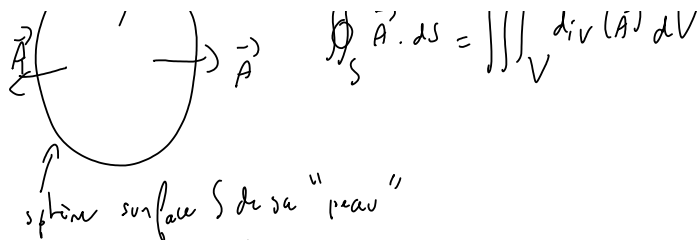 ∯_S A⃗ . dS = ∭_V div (A⃗) dV
A⃗ A⃗
sphère surface S de sa "peau"